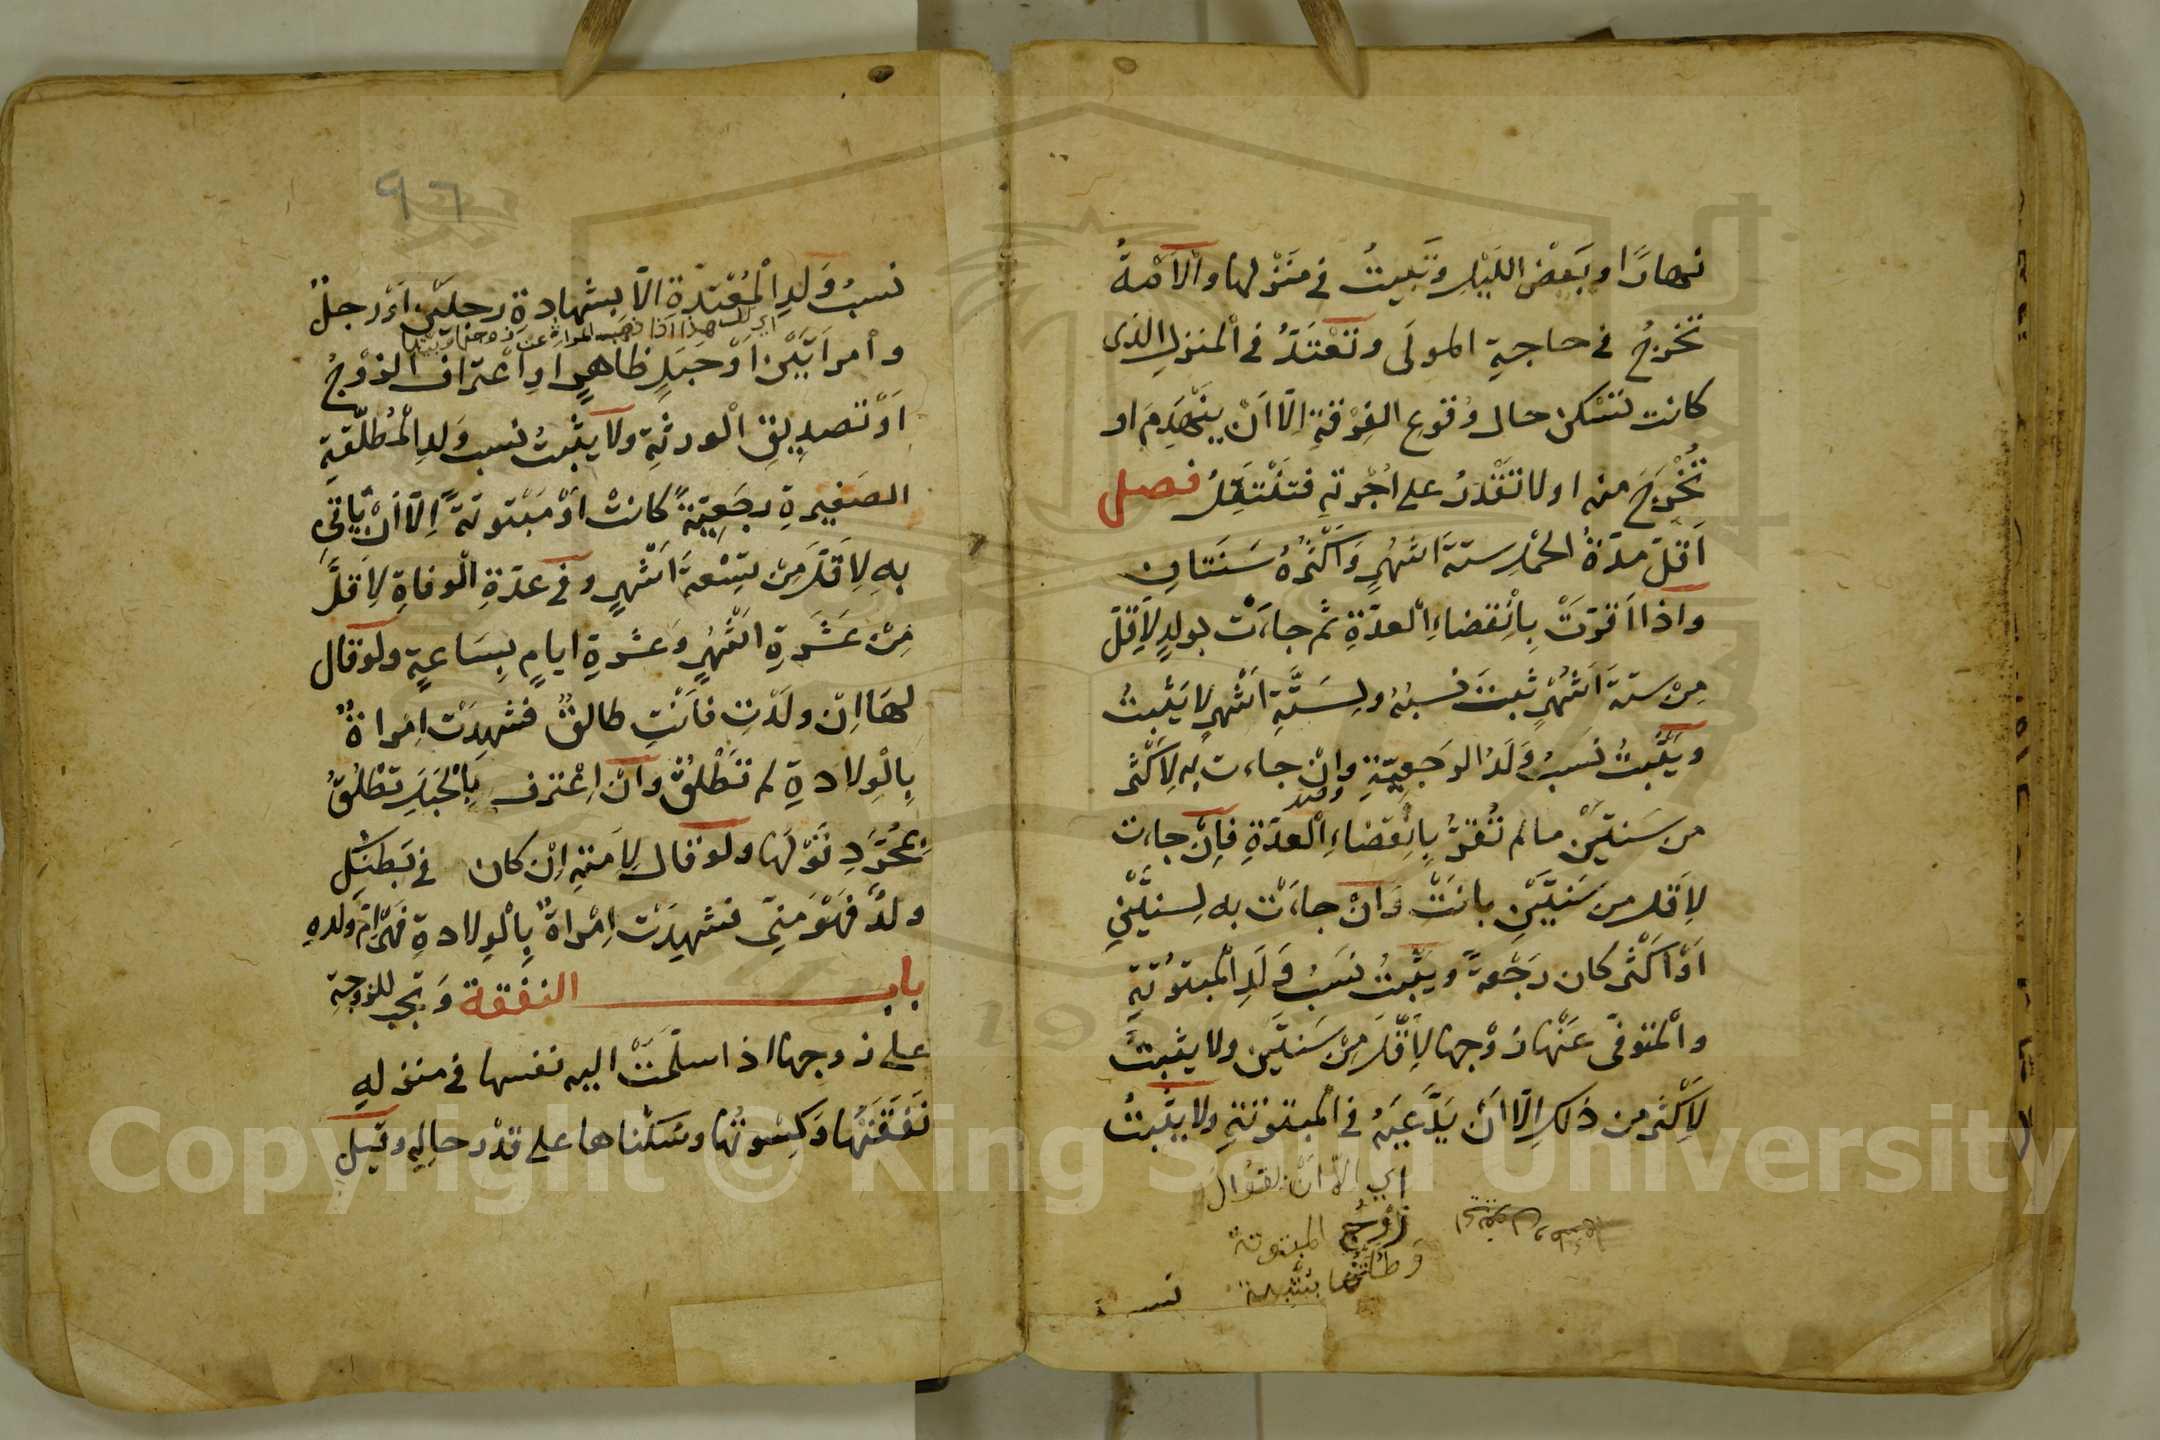 نهارًا وبَعْضَ اللَّيْلِ وَتَبِيتُ في مَنْزِلها وَالْاَمَةُ
تَخْرُجُ في حاجةِ المولَى وتَعْتَدُّ في الْمنزلِ الذى
كانت تَسْكن حال وُقوعِ الفِرْقةِ اِلّا اَنْ يَنْهَدِمَ او
تُخْرَجَ منه او لا تَقْدَرُ على اُجْرتهِ فتَنْتَقِلُ فصل
اَقَلّ مدّةُ الحمْلِ ستةَ اشهُرٍ وَاَكْثَرُهُ سَنَتانِ
واذا اَقرّتْ بِاْنقضاءِ الْعدّةِ ثم جاءَتْ بولدٍ لِاَقلّ
مِنْ ستةَ اَشْهُرٍ ثبتَ نسبُهُ ولِسَتَّةِ اَشْهرٍ لا يَثْبتُ
ويَثْبتُ نسَبُ وَلَدُ الرجَعِيّةِ وانْ جاءت به لِاَكْثَر
من سَنتَيْنِ مالم تُقرَّ بِانْقضاءِ الْعدّةِ فاِنْ جاءت
لِاَقل من سَنتَيْنِ بانَتْ وَانْ جاءَتْ به لِسنتَيْنِ
اَوْ اَكْثَر كان رَجْعةً ويَثْبتُ نسَبُ وَلَدِ الْمبتوُتَةِ
والْمتوفّى عَنْها زوْجها لِاَقَلَّ مِنْ سَنتَيْنِ ولا يثبتُ
لِاَكْثَر من ذلك اِلّا اَنْ يَدَّعِيَهُ في الْمبتوتةِ ولا يَثْبتُ
اي الّا اَنْ يقوُلَ
زَوْجُ المبتوتة
وَطئْتُها بشُبهة
نسب
٩٦
نسبُ وَلَدِ الْمُعْتدّةِ الّا بشهادةِ رجلَيْنِ اَوْ رجلٌ
واْمرَاَتَيْن اَوْ حبَلٍ ظاهرٍ اوِ اْعترافِ الزوْجُ
اَوْ تصديقِ الْورثةِ ولا يثْبتُ نسب وَلدِ الْمُطلّقةِ
الصَغيرةِ رجَعِيّةً كانتْ اَوْ مَبْتوتةً اِلّا اَنْ يّاْتِى
بهِ لِاَقَلَّ مِنْ تِسْعةِ اَشْهرٍ وفي عدّةِ الْوفاةِ لِاَقلَّ
مِنْ عَشَرةِ اشْهُرٍ وَعشرةِ ايامٍ بِسَاعةٍ ولو قال
لهَا اِنْ ولَدْتِ فاَنْتِ طالقٌ فشهدَتْ امراةٌ
بِالْوِلادةِ لم تَطْلُقْ وانْ اِعْترف بِالْحَبَلِ تَطْلُقُ
بمُجَرّدِ قَوْلها ولو قال لِاَمتهِ اِنْ كان في بَطنِكِ
ولدٌ فهْوَ منِّى فشهِدَتْ اِمْراةٌ بِالْوِلادةِ فهْىَ اُمّ وَلَدهِ
باب النفقة وَتجب للزوجةِ
على زوجها اذا سلّمَتْ اليه نفسها في منزلهِ
نَفَقَتُها وَكِسْوتُها وسُكْناها على قدْر حالِهِ وقيل
Copyright © King Saud University